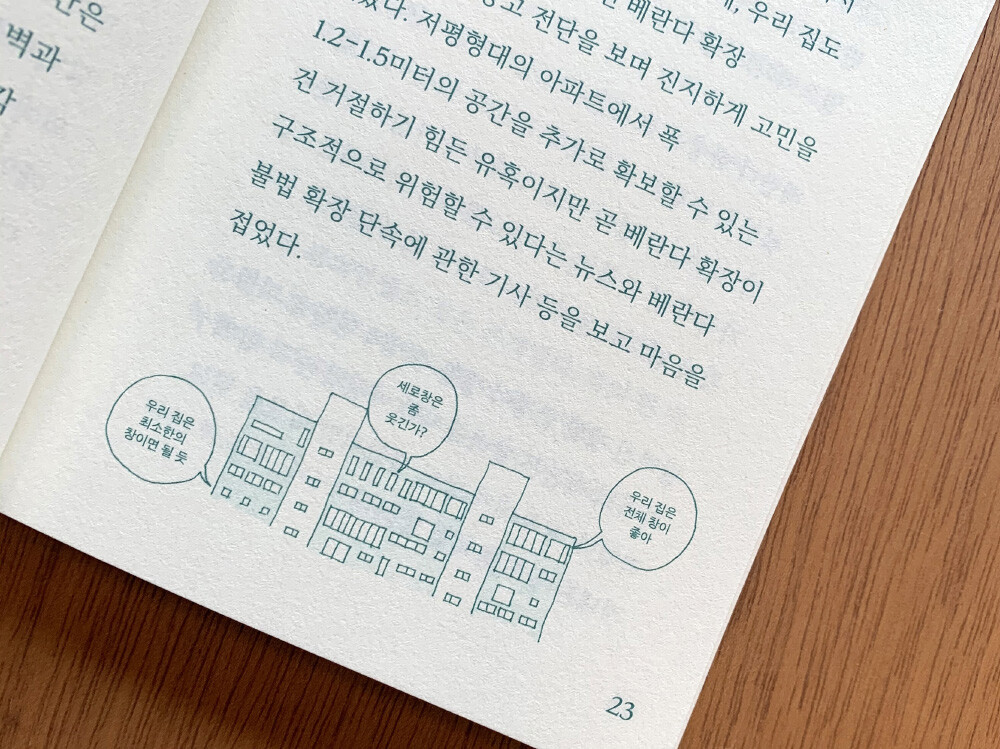 은
벽과
우리 집도
베란다 확장
고 전단을 보며 진지하게 고민을
었다. 저평형대의 아파트에서 폭
1.2-1.5미터의 공간을 추가로 확보할 수 있는
건 거절하기 힘든 유혹이지만 곧 베란다 확장이
구조적으로 위험할 수 있다는 뉴스와 베란다
불법 확장 단속에 관한 기사 등을 보고 마음을
접었다.
우리 집은
최소한의
창이면 될 듯
세로창은
좀
웃긴가?
우리 집은
전체 창이
좋아
23